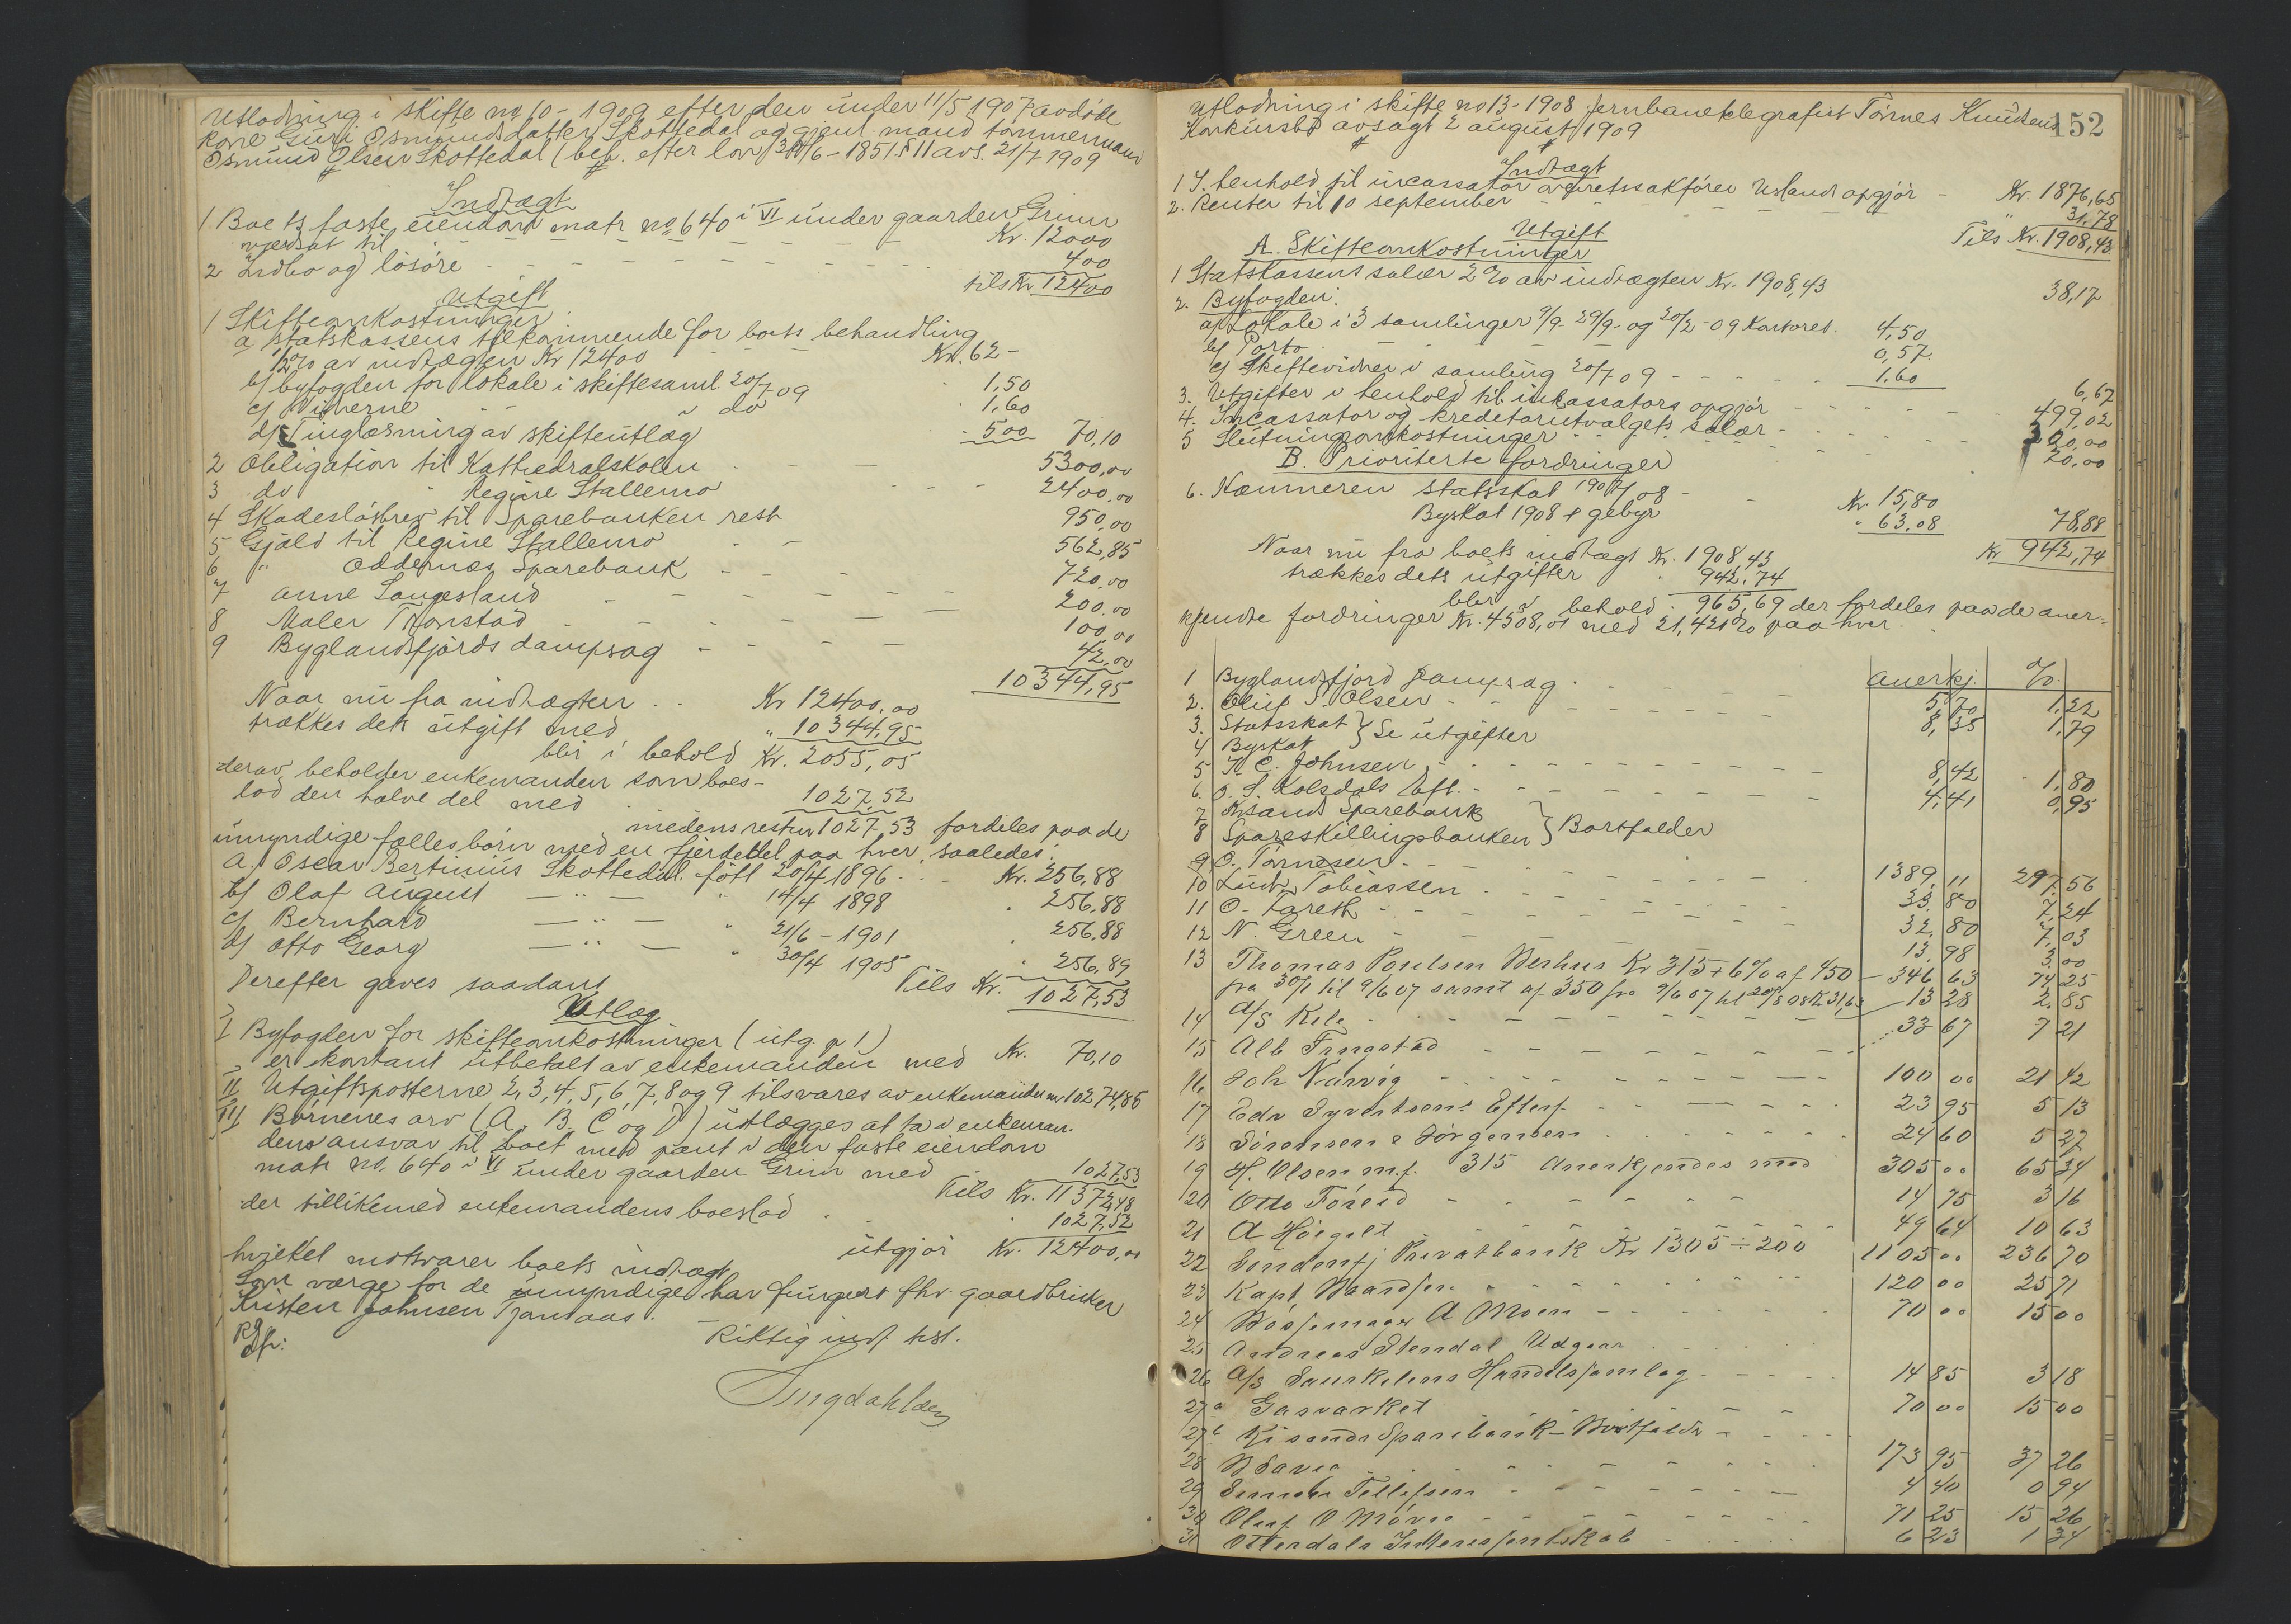 Utlodning i skifte no 10 - 1909 efter den under 11/5 1907 avdöde
kone Guri Osmundsdatter Skottedal og gjenl. mand tömmermand
Osmund Olsen Skottedal (beh. efter lov 30/6 - 1851 § 11 avs. 21/7 1909
Indtægt
1 Boets faste eiendom matr no 640 i VI under gaarden Grim
værdsat til - - - - Kr. 12000
2 Indbo og lösöre - - - - 400
tils Kr 12400
Utgift
1 Skifteomkostninger
a statskassens tilkommende for boets behandling
1/2 % av indtægten Kr 12400 Kr. 62 -
b/ byfogden for lokale i skiftesaml. 20/7 09 1,50
c/ Vidnerne - do 1,60
d/ Tinglæsning av skifteutlæg 5 00 70,10
2 Obligation til Kathedralskolen - - 5300,00
3 do - Regine Stallemo - - - 2400,00
4 Skadeslösbrev til Sparebanken rest 950,00
5 Gjæld til Regine Stallemo - - 562,85
6 " Oddernes Sparebank - - - 720,00
7 Anne Langesland - - - - 200,00
8 Maler Thonstad - - - - 100,00
9 Byglandsfjords dampsag - - - - 42,00
10344,95
Naar nu fra indtægten . . Kr 12400,00
trækkes dets utgift med " 10344,95
blir i behold Kr. 2055,05
derav beholder enkemanden som boes-
lod den halve del med 1027,52
medens resten 1027,53 fordeles paa de
umyndige fællesbörn med en fjerdedel paa hver, saaledes:
a/ Oscar Bertinius Skottedal född 20/4 1896 - - Kr. 256,88
b/ Olaf August — " — " 14/4 1898 . 256,88
c/ Bernhard — " — " 21/6 - 1901 . 256,88
d/ Otto Georg — " — " 30/4 1905 . 256,89
Tils Kr. 1027,53
Derefter gjøves saadant
Utlæg
I Byfogden for skifteomkostninger (utg. p 1)
er kontant utbetalt av enkemanden med Kr. 70,10
II Utgiftsposterne 2, 3, 4, 5, 6, 7, 8 og 9 tilsvares av enkemanden m 10274,85
III Börnenes arv (A, B, C og D) utlægges at ta i enkeman-
dens ansvar til boet med pant i den faste eiendom
matr no. 640 i VI under gaarden Grim med 1027,53
Tils Kr. 11372,48
der tillikemed enkemandens boeslod . . 1027,52
utgjör Kr. 12400,00
hvilket motsvarer boets indtægt
Som værge for de umyndige har fungert fhv. gaardbruker
Kristen Johnsen Jantaas. — Riktig indf. test.
152
Utlodning i skifte no 13 - 1908 Jernbanetelegrafist Tönnes Knudsens
Konkursbo avsagt 2 august 1909
Indtægt
1 I henhold til incassator overretssakförer Uslands opgjör - Kr. 1876,65
2. Renter til 10 september - - - - " 31,78
Tils Kr. 1908,43
Utgift
A. Skifteomkostninger
1 Statskassens salær 2 % av indtægten Kr. 1908,43 38,17
2. Byfogden:
a/ Lokale i 3 samlinger 9/9 - 29/9 - og 20/2 - 09 Kontoret. 4,50
b/ Porto - - - - 0,57
c/ Skiftevidner i samling 20/7 09 - - - - 1.60 6,67
3. Utgifter i henhold til inkassators opgjör - - - - 499,02
4. Incassator og kreditorutvalgets salær - - - - 300,00
5 Slutningomkostninger - - - - 20,00
B. Prioriterte fordringer
6. Kæmneren statsskat 1907/08 - - Kr 15,80
Byskat 1908 + gebyr " 63.08 78,88
Kr 942,74
Naar nu fra boets indtægt Kr. 1908,43
trækkes dets utgifter " 942,74
blir i behold . 965,69 der fordeles paa de aner-
kjendte fordringer Kr. 4508,01 med 21,421 % paa hver.
Anerkj. %
1 Byglandsfjord Dampsag - - - - 5,70 1,22
2. Oluf S. Olsen - - - - 8,35 1,79
3. Statsskat } Se utgifter
4 Byskat
5 K. C. Johnsen - - - - 8,42 1,80
6. O. S. Kolsdals Eft. - - - - 4,41 0,95
7 Krsands Sparebank } Bortfalder
8 Spareskillingsbanken
9 O. Tönnesen - - - - 1389,11 297,56
10 Ludv. Tobiassen - - - - 33,80 7,24
11 O. Tareth - - - - 32,80 7,03
12 N. Green - - - - 13,98 3,00
13 Thomas Poulsen Berhus Kr 315 + 6 % af 450 - 346 63 74 25
fra 30/1 til 9/6 07 samt af 350 fra 9/6 07 til 20/8 08 Kr 31,63
14 A/S Kile - - - - 13 28 2 85
15 Alb Fringstad - - - - 33 67 7 21
16 Joh Narvig - - - - 100 00 21 42
17 Edv Syvertsens Efterf - - - - 23 95 5 13
18 Sörensen & Jörgensen - - - - 24 60 5 27
19 H. Olsen m.f. 315 Anerkjendes med 305 00 65 34
20 Otto Foreid - - - - 14 75 3 16
21 A Höigilt - - - - 49 64 10 63
22 Söndenfj Privatbank Kr 1305 ÷ 200 1105 00 236 70
23 Kapt Baardsen - - - - 120 00 25 71
24 Bössemager A Moen - - - - 70 00 15 00
25 Andreas Stendal Udgaar
26 A/S Saurkelens Handelssamlag - - - - 14 85 3 18
27a Gasværket - - 70 00 15 00
27b Krsands Sparebank - Bortfalder - - -
28 - - - - 173 95 37 26
29 Tellefsen - - - - 4 40 0 94
30 Oluf O - - - - 71 25 15 26
31 Otterdals Interessentskab - - - - 6 23 1 34